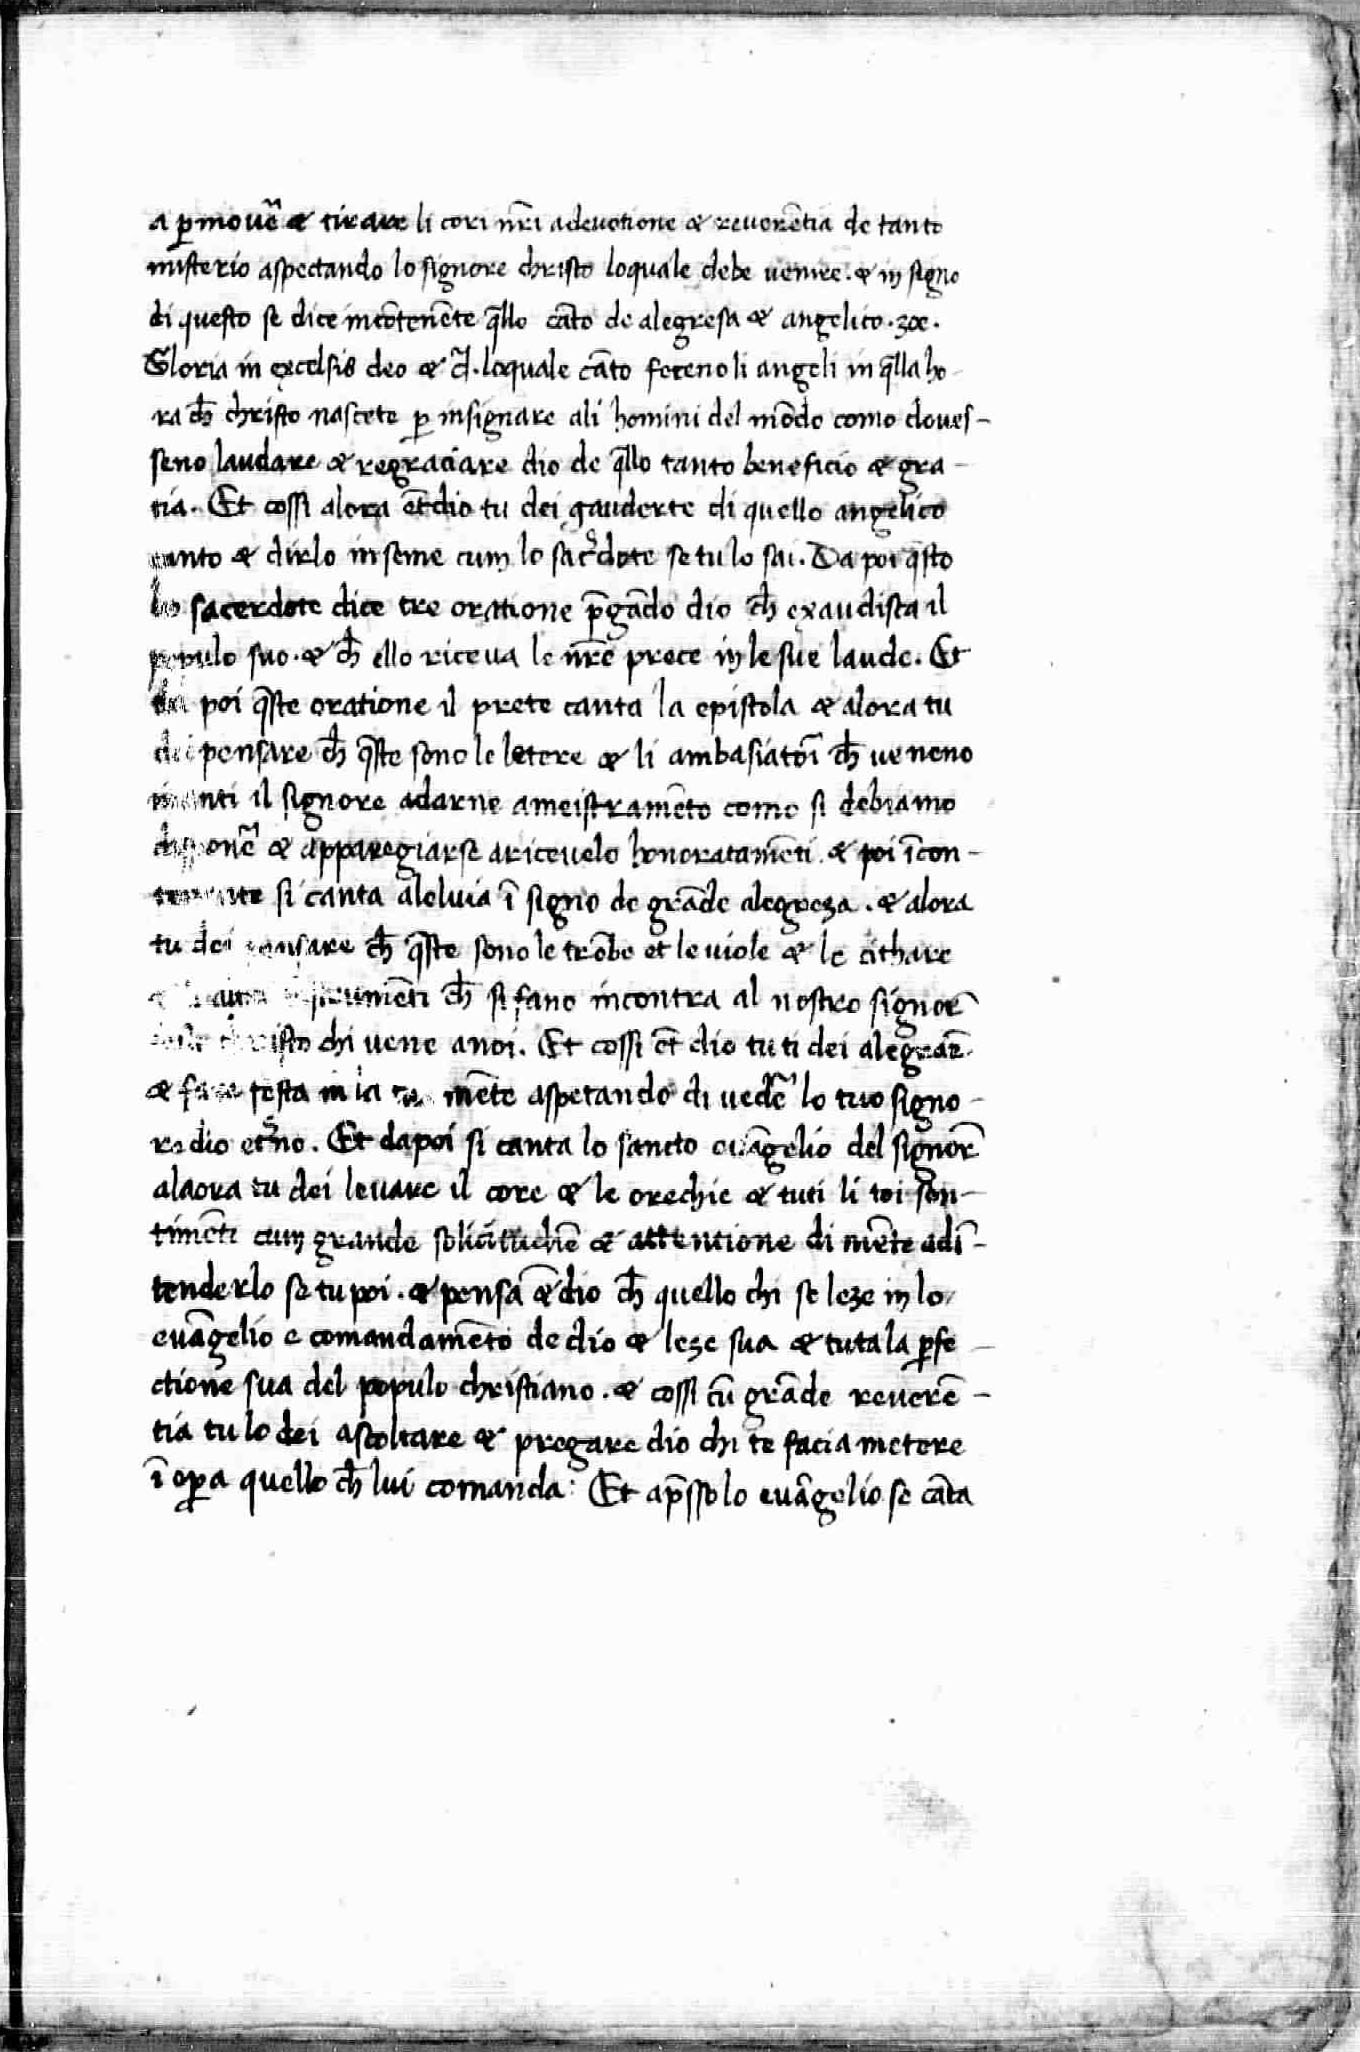 a ꝑmovẽ & tirare li cori nr̃i a devotione & reverẽtia de tanto
misterio aspectando lo signore christo loquale debe venire . & in signo
di questo se dice incõtenẽte q̃llo cãto de alegresa & angelico . zoe .
Gloria in excelsis deo & c̃ . loquale cãto feceno li angeli in q̃lla ho
ra ch̃ christo nascete ꝑ insignare ali homini del mõdo como doves-
seno laudare & regraciare dio de q̃llo tanto beneficio & gra-
tia . Et cossi alora et̃dio tu dei gauderte di quello angelico
canto & dirlo inseme cum lo sac̃dote se tu lo sai . Da poi q̃sto
lo sacerdote dice tre oratione p̃gãdo dio ch̃ exaudisca il
populo suo . & ch̃ ello riceva le nr̃e prece in le sue laude . Et
da poi q̃ste oratione il prete canta la epistola & alora tu
dei pensare ch̃ q̃ste sono le letere & li ambasiatorĩ ch̃ veneno
inanti il signore a darne ameistramẽto como si debiamo
disponẽ & apparegiarse a ricevelo honoratamẽti . & poi ĩcon-
tenente si canta aleluia ĩ signo de grãde alegreza . & alora
tu dei pensare ch̃ q̃ste sono le trõbe et le viole & le cithare
ch̃ si fano incontra al nostro signor̃
christo chi vene a noi . Et cossi et̃ dio tu ti dei alegrar̃
& fare festa in la tua mẽte aspetando di vedẽ lo tuo signo-
re dio et̃no . Et da poi si canta lo sancto evãgelio del signor̃
alaora tu dei levare il core & le orechie & tuti li toi sen-
timẽti cum grande solicitudiẽ & attentione di mẽte adĩ-
tenderlo se tu poi . & pensa et̃dio ch̃ quello chi se leze in lo
evãgelio e comandamẽto de dio & leze sua & tuta la ꝑfe-
ctione sua del populo christiano . & cossi cũ grãde reverẽ-
tia tu lo dei ascoltare & pregare dio chi te facia metere
ĩ oꝑa quello ch̃ lui comanda : Et ap̃sso lo evãgelio se cãta